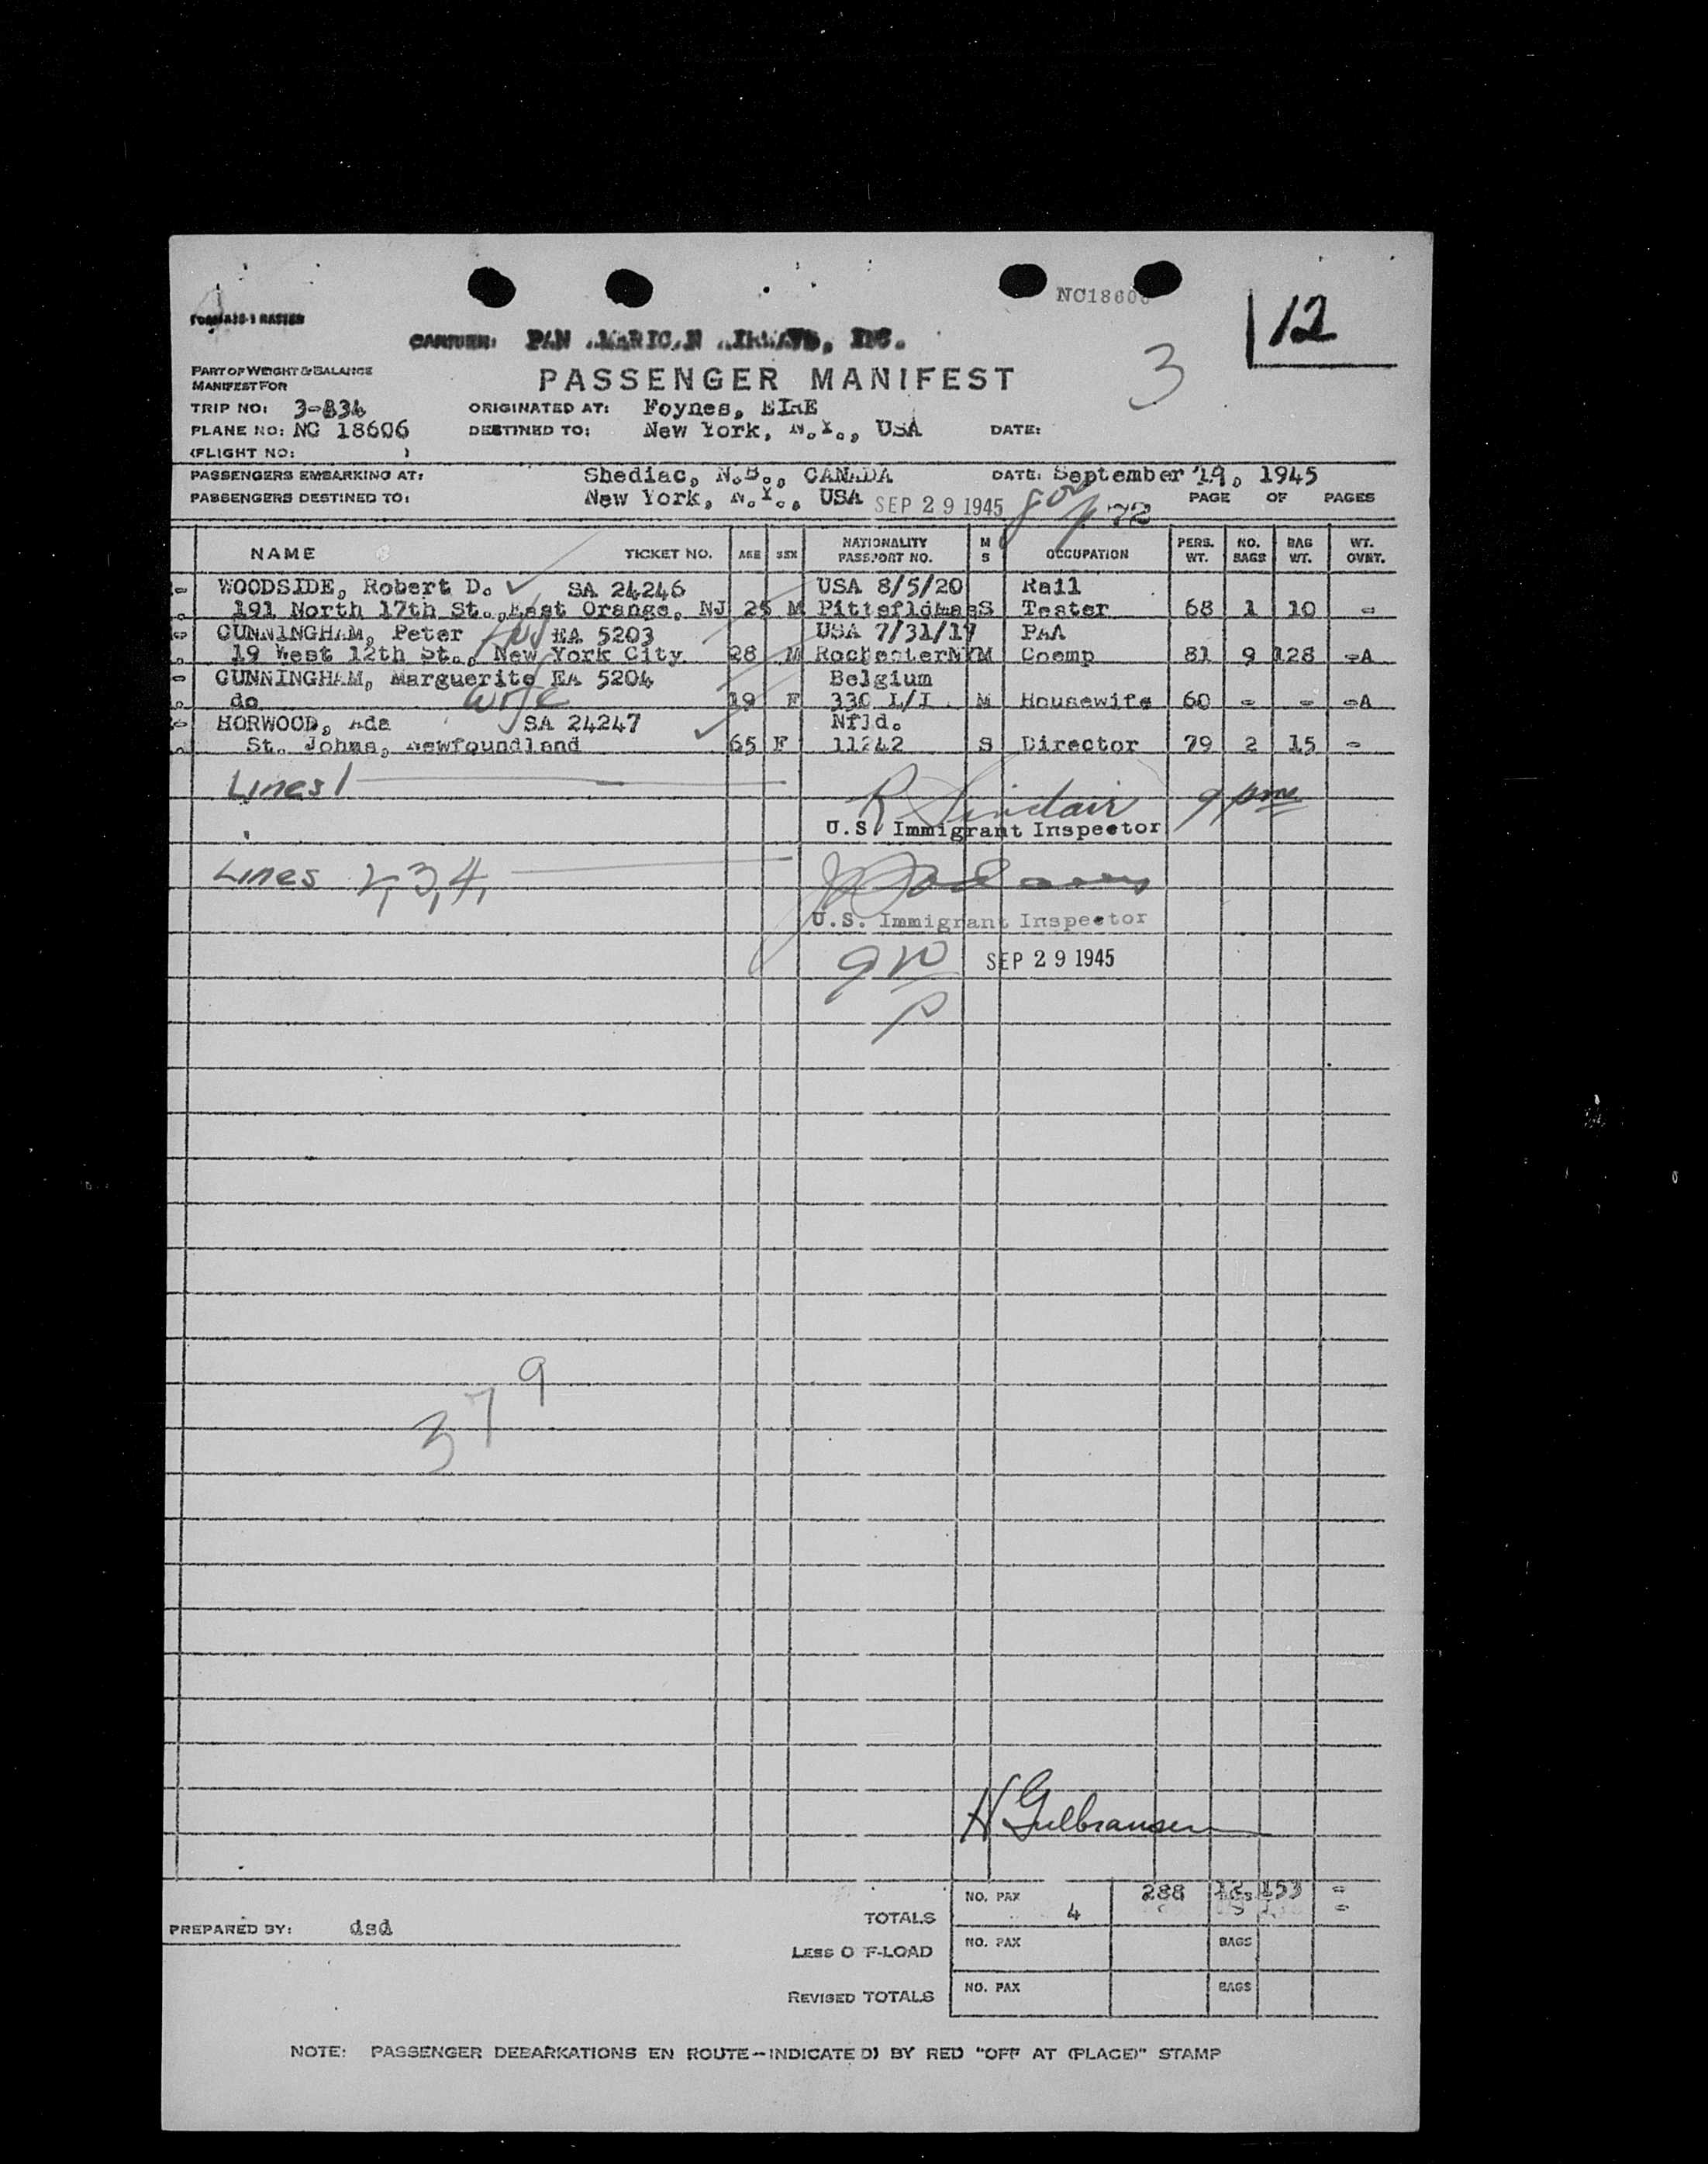 NC18606
12
3
FORM A28-1 MASTER
CARRIER: PAN AMERICAN AIRWAYS, INC.
PART OF WEIGHT & BALANCE
MANIFEST FOR
PASSENGER MANIFEST
TRIP NO: 3-834 ORIGINATED AT: Foynes, EIRE
PLANE NO: NC 18606 DESTINED TO: New York, N.Y., USA DATE:
(FLIGHT NO: )
PASSENGERS EMBARKING AT: Shediac, N.B., CANADA DATE: September 19, 1945
PASSENGERS DESTINED TO: New York, N.Y., USA SEP 29 1945 PAGE OF PAGES
72
NAME TICKET NO. AGE SEX NATIONALITY PASSPORT NO. M S OCCUPATION PERS. WT. NO. BAGS BAG WT. WT. OVWT.
WOODSIDE, Robert D. SA 24246 USA 8/5/20 Rail
191 North 17th St., East Orange, NJ 25 M S Tester 68 1 10 -
CUNNINGHAM, Peter EA 5203 USA 7/31/17 PAA
19 West 12th St., New York City 28 M RochesterNY M Coemp 81 9 128 -A
CUNNINGHAM, Marguerite EA 5204 Belgium
do wife 19 F 330 L/I M Housewife 60 - - -A
HORWOOD, Ada SA 24247 Nfld.
St. Johns, Newfoundland 65 F 11242 S Director 79 2 15 -
Lines 1 R Sinclair 9 pm
U.S. Immigrant Inspector
Lines 2,3,4,
U.S. Immigrant Inspector
SEP 29 1945
9
7
3
H Gulbransen
NO. PAX 288 12 153 -
TOTALS 4 -
PREPARED BY: dsd
LESS OFF-LOAD NO. PAX BAGS
REVISED TOTALS NO. PAX BAGS
NOTE: PASSENGER DEBARKATIONS EN ROUTE-INDICATED) BY RED "OFF AT (PLACE)" STAMP